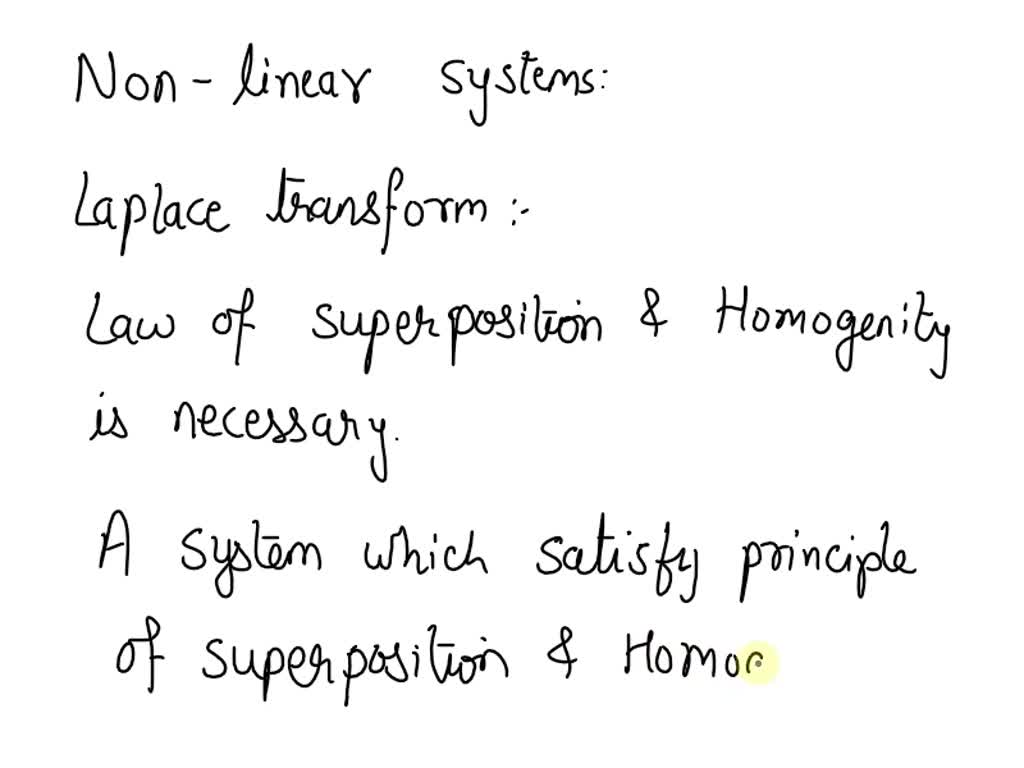 Non-linear systems:
Laplace transform :-
Law of superposition & Homogenity
is necessary.
A system which satisfy principle
of superposition & Homo